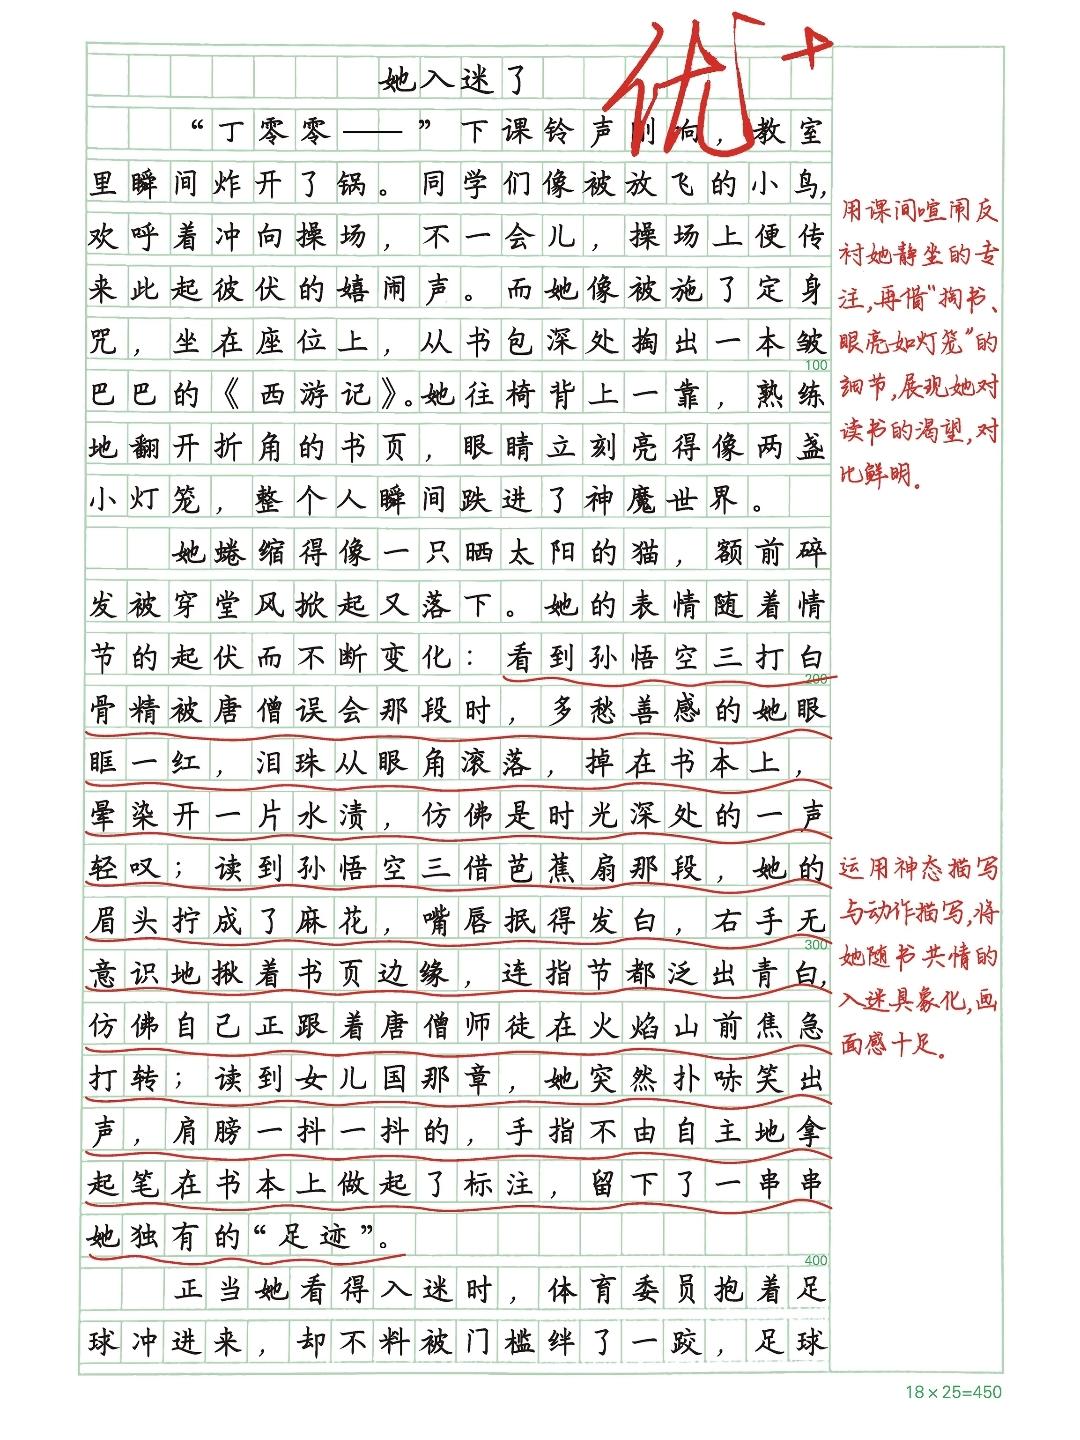 她入迷了
优+
“丁零零——”下课铃声刚响，教室
里瞬间炸开了锅。同学们像被放飞的小鸟，
欢呼着冲向操场，不一会儿，操场上便传
来此起彼伏的嬉闹声。而她像被施了定身
咒，坐在座位上，从书包深处掏出一本皱
100
巴巴的《西游记》。她往椅背上一靠，熟练
地翻开折角的书页，眼睛立刻亮得像两盏
小灯笼，整个人瞬间跌进了神魔世界。
她蜷缩得像一只晒太阳的猫，额前碎
发被穿堂风掀起又落下。她的表情随着情
节的起伏而不断变化：看到孙悟空三打白
200
骨精被唐僧误会那段时，多愁善感的她眼
眶一红，泪珠从眼角滚落，掉在书本上，
晕染开一片水渍，仿佛是时光深处的一声
轻叹；读到孙悟空三借芭蕉扇那段，她的
眉头拧成了麻花，嘴唇抿得发白，右手无
300
意识地揪着书页边缘，连指节都泛出青白，
仿佛自己正跟着唐僧师徒在火焰山前焦急
打转；读到女儿国那章，她突然扑哧笑出
声，肩膀一抖一抖的，手指不由自主地拿
起笔在书本上做起了标注，留下了一串串
她独有的“足迹”。
400
正当她看得入迷时，体育委员抱着足
球冲进来，却不料被门槛绊了一跤，足球
用课间喧闹反
衬她静坐的专
注，再借“掏书、
眼亮如灯笼”的
细节，展现她对
读书的渴望，对
比鲜明。
运用神态描写
与动作描写，将
她随书共情的
入迷具象化，画
面感十足。
18×25=450